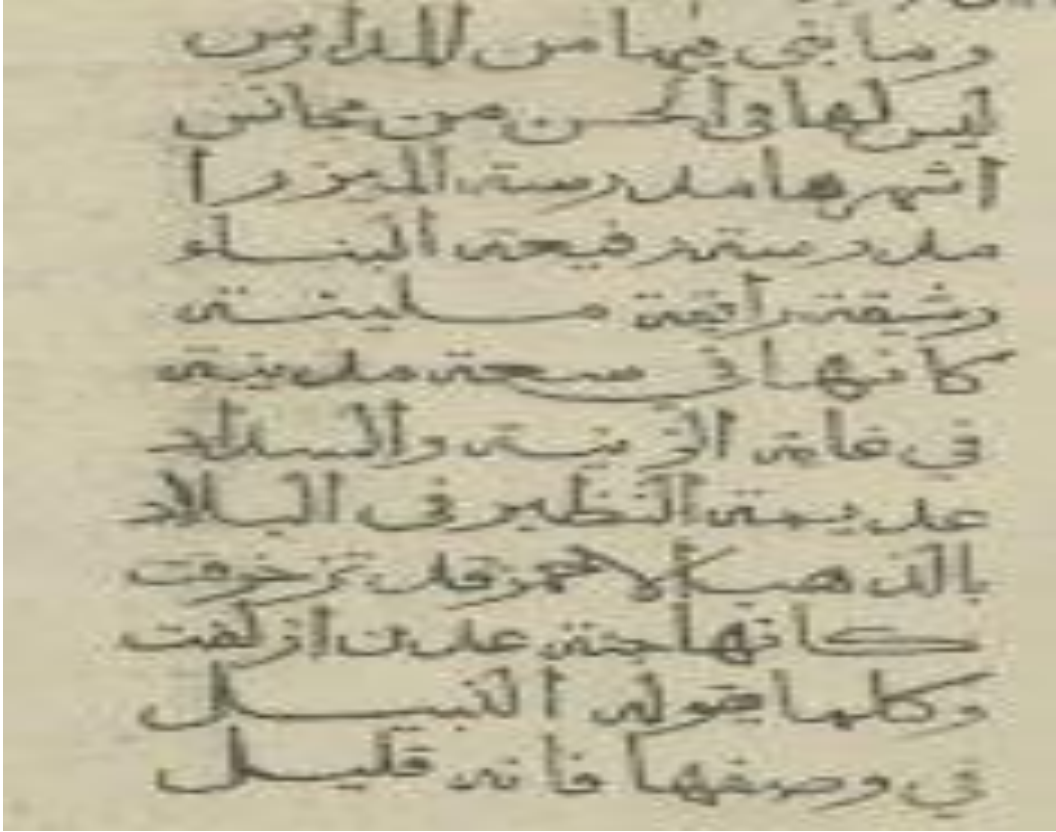 وما بنى فيها من المدارس
ليس لها في الحسن من مجانس
اشهرها مدرسة الميرزا
مدرسة رفيعة البناء
رشيقة رائقة متينة
كانها في سعة مدينة
في غاية الزينة والسداد
عديمة النظير في البلاد
بالذهب الاحمر قد تزخرفت
كانها جنة عدن ازلفت
وكلما يقوله النبيل
في وصفها فانه قليل